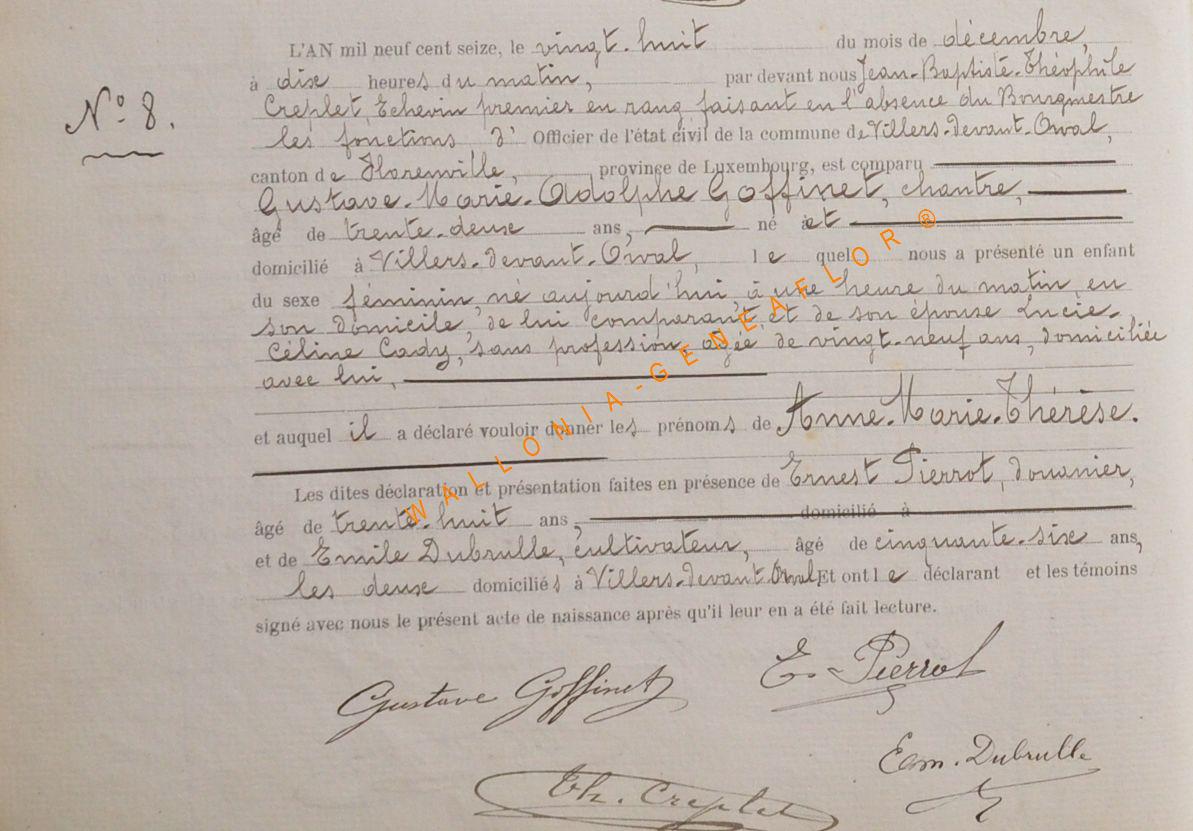 L'AN mil neuf cent seize, le vingt-huit du mois de décembre,
à dix heures du matin, par devant nous Jean-Baptiste-Théophile
Creplet, Echevin premier en rang faisant en l'absence du Bourgmestre
N° 8.
les fonctions d' Officier de l'état civil de la commune de Villers-devant-Orval,
canton de Florenville, province de Luxembourg, est comparu
Gustave-Marie-Adolphe Goffinet, chantre,
âgé de trente-deux ans, né à et
domicilié à Villers-devant-Orval, le quel nous a présenté un enfant
du sexe féminin né aujourd'hui, à une heure du matin, en
son domicile, de lui comparant et de son épouse Lucie-
Céline Cady, sans profession, âgée de vingt-neuf ans, domiciliée
avec lui,
et auquel il a déclaré vouloir donner les prénoms de Anne-Marie-Thérèse.
Les dites déclaration et présentation faites en présence de Ernest Pierrot, douanier,
âgé de trente-huit ans, domicilié à
et de Emile Dubrulle, cultivateur, âgé de cinquante-six ans,
les deux domiciliés à Villers-devant Orval Et ont le déclarant et les témoins
signé avec nous le présent acte de naissance après qu'il leur en a été fait lecture.
Gustave Goffinet E. Pierrot
Eam. Dubrulle
Th. Creplet
WALLONIA-GENEAFLOR ®